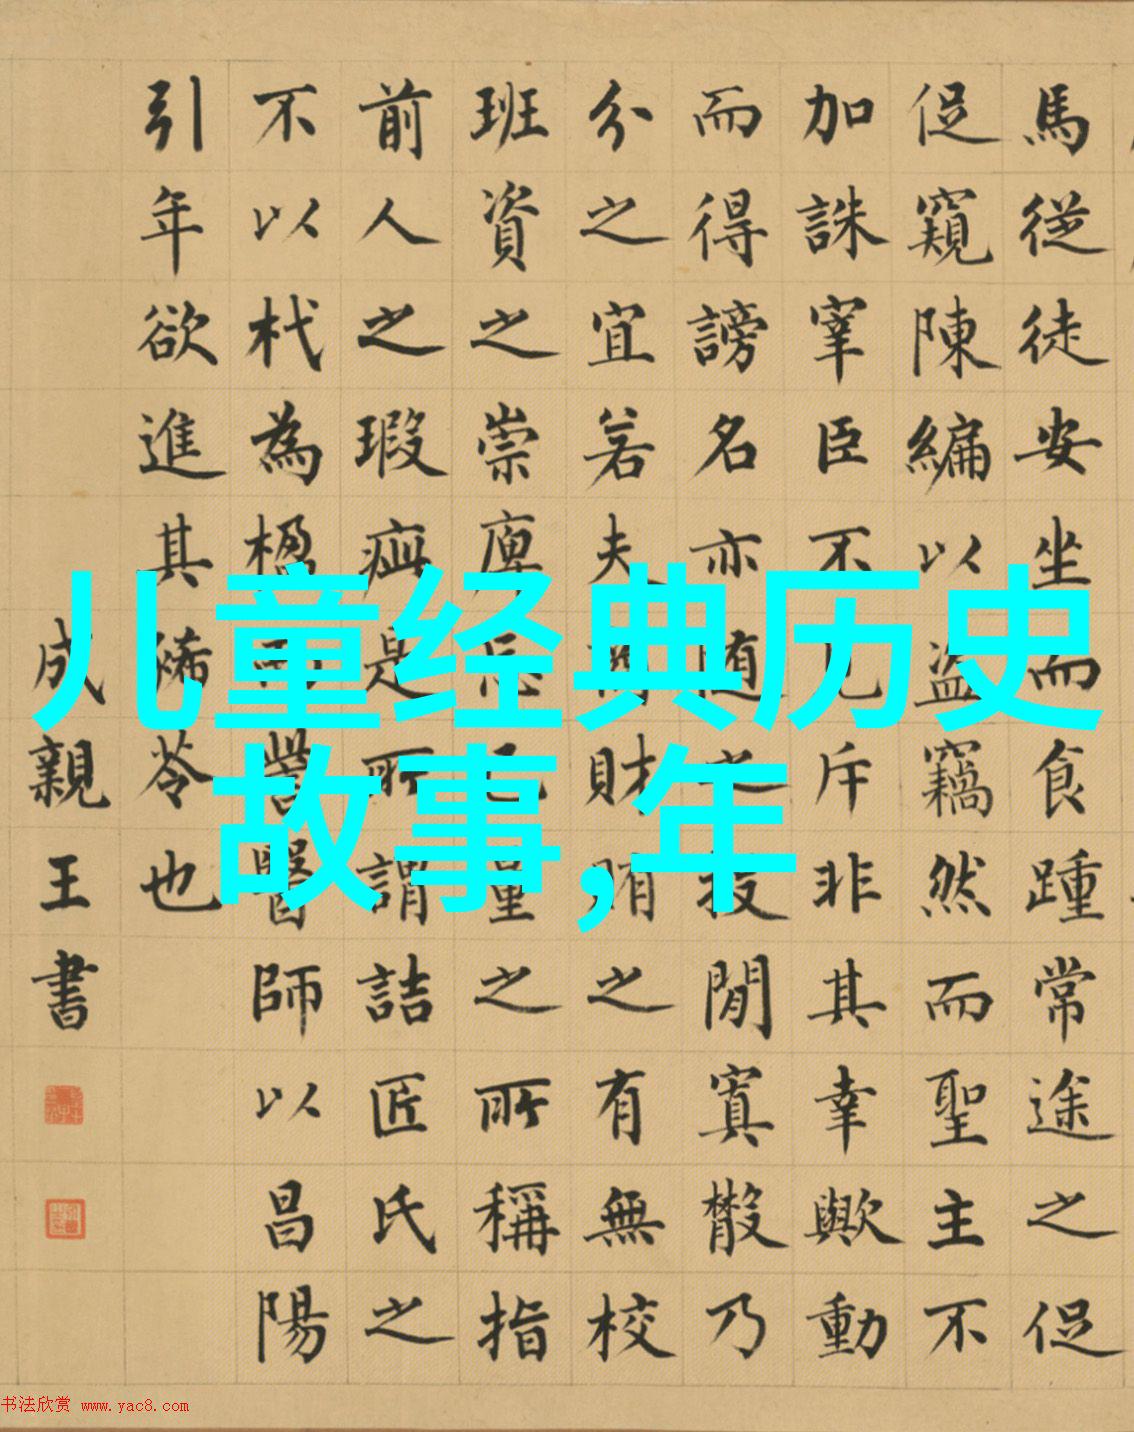 儿童经典历史
故事,年
馬從徒安坐而食踵常途之促
促窺陳編以盜竊然而聖主不
加誅宰臣不見斥非其幸歟動
而得謗名亦随之投閒寘散乃
分之宜若夫商財賄之有無校
班資之崇庳忘己量之所稱指
前人之瑕疵是所謂詰匠氏之
不以杙為楹而訾醫師以昌陽
引年欲進其豨苓也
成親王書
书法欣赏 www.yac8.com